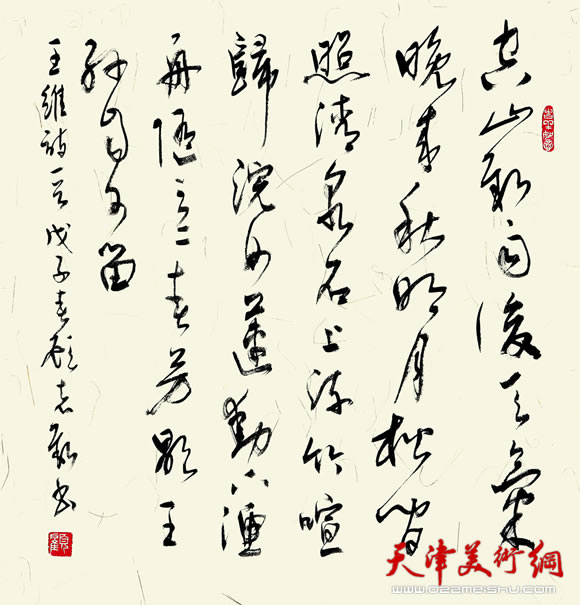 空山新雨後天氣
晚來秋明月松間
照清泉石上流竹喧
歸浣女蓮動下漁
舟隨意春芳歇王
孫自可留
王維詩一首戊子春顧志新書
天津美術網
www.022meishu.com